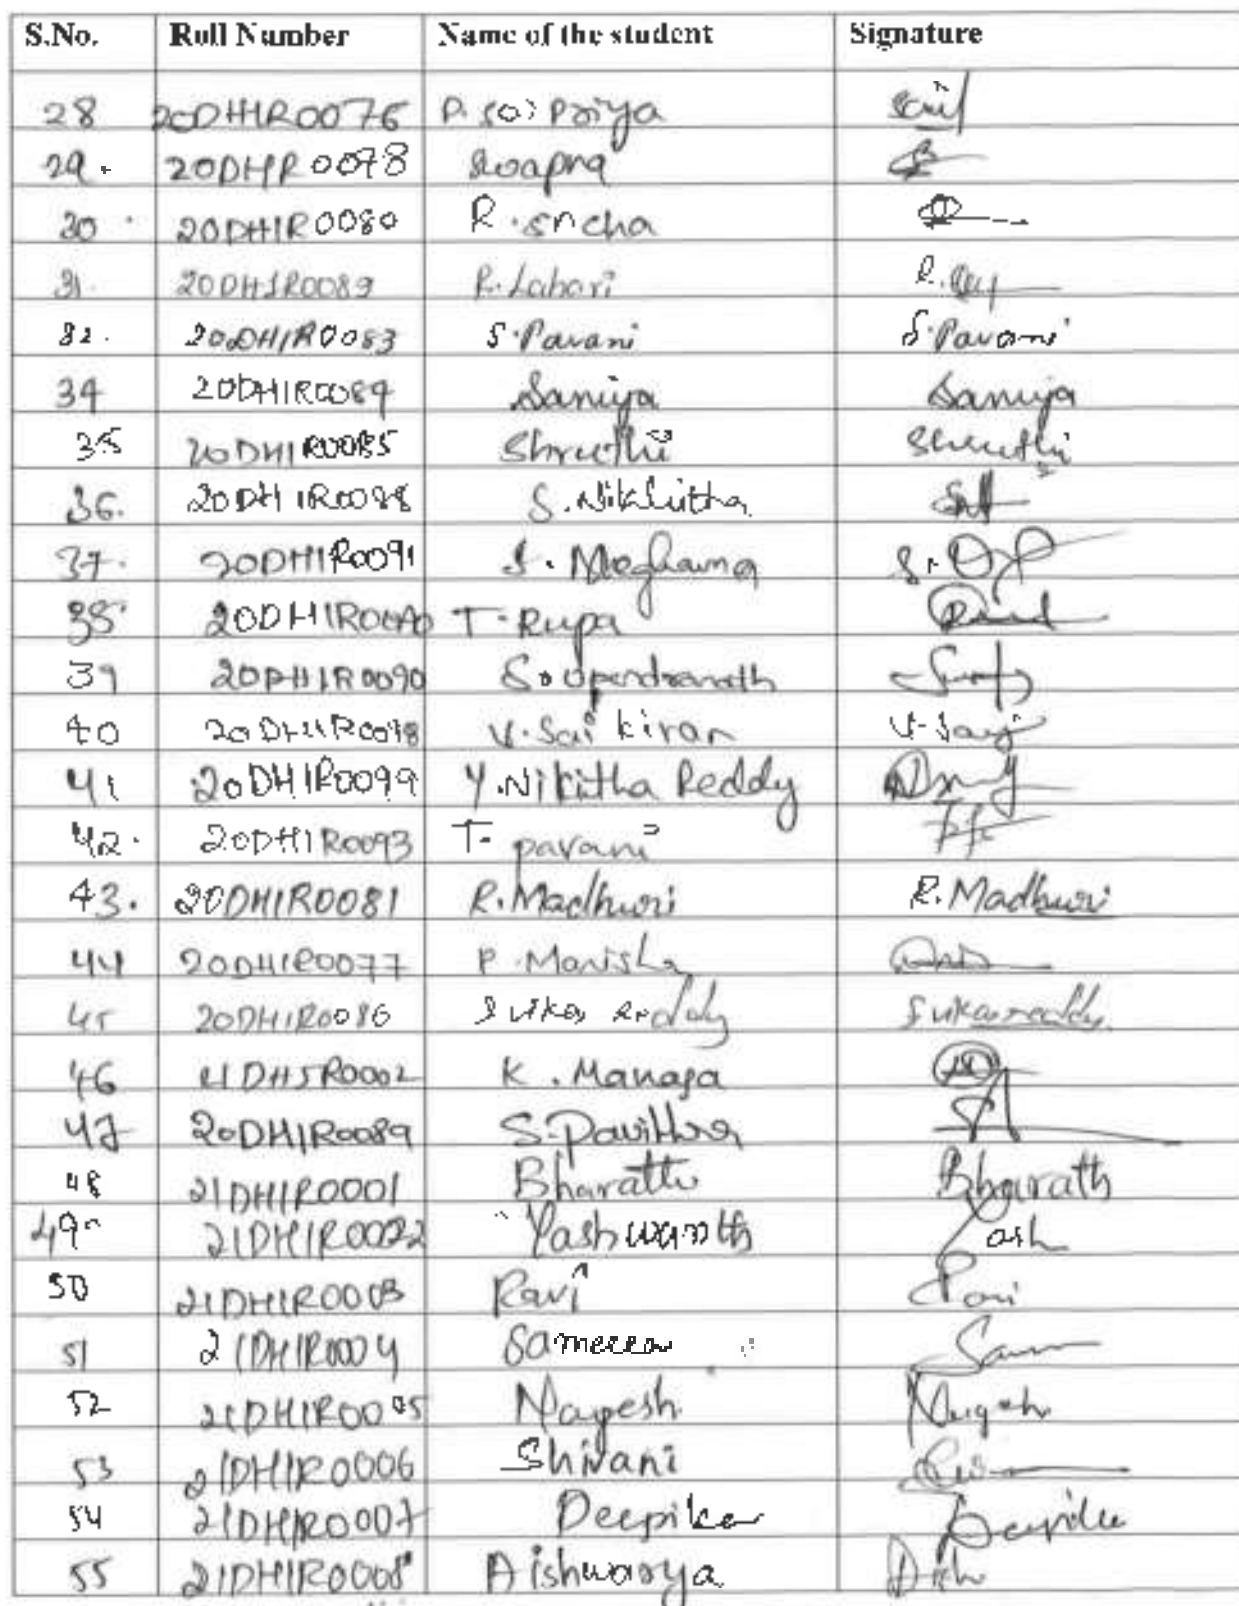 S.No. Roll Number Name of the student Signature
28 20DH1R0076 P. Sai Priya sail
29. 20DH1R0078 Swapna
30 20DH1R0080 R. Sneha
31. 20DH1R0089 R. Lahari R.
32. 20DH1R0083 S. Pavani S. Pavani
34 20DH1R0084 Saniya Saniya
35 20DH1R0085 Shruthi Shruthi
36. 20DH1R0088 S. Nikhitha
37. 20DH1R0091 S. Meghana
38. T. Rupa
39 20DH1R0090 S. Upendranath
40 20DH1R0098 V. Sai kiran V. Sai
41 20DH1R0099 Y. Nikitha Reddy
42. 20DH1R0093 T. pavani
43. 20DH1R0081 R. Madhuri R. Madhuri
44 20DH1R0077 P. Manisha
45 20DH1R0086 Reddy
46 21DH5R0002 K. Manasa
47 20DH1R0089 S. Pavithra
48 21DH1R0001 Bharath Bharath
49 21DH1R0022 Yashwanth Yash
50 21DH1R0003 Ravi Ravi
51 21DH1R0004 Sameera Sam
52 21DH1R0005 Nagesh Nagesh
53 21DH1R0006 Shivani
54 21DH1R0007 Deepika Deepika
55 21DH1R0008 Aishwarya Aish